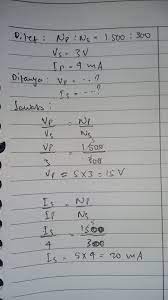 Diket : Np : Ns = 1500 : 300
Vs = 3V
Ip = 4 mA
Ditanya : Vp = ...?
Is = ...?
Jawab :
Vp/Vs = Np/Ns
Vp/3 = 1500/300
Vp = 5x3 = 15V
Is/Ip = Np/Ns
Is/4 = 1500/300
Is = 5x4 = 20 mA